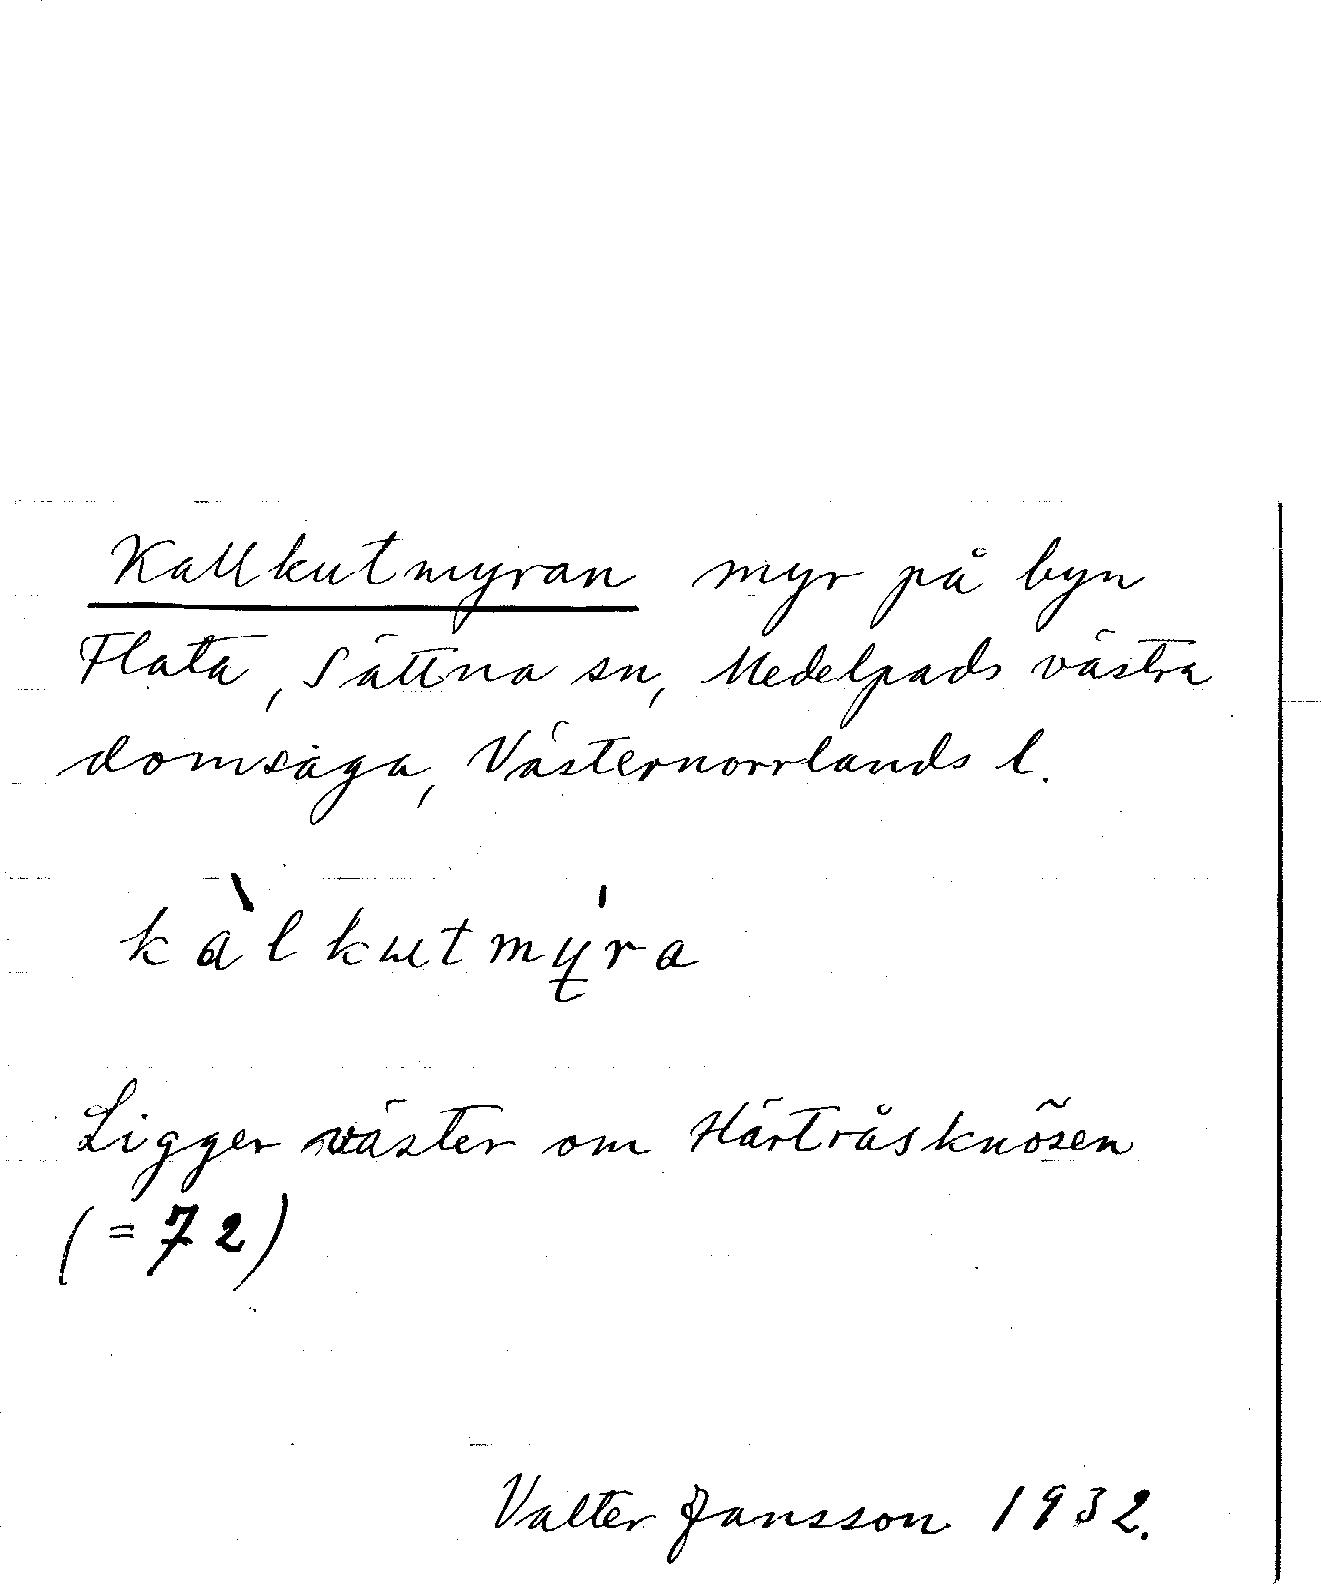 Kallkutmyran myr på byn
Flata, Sättna sn, Medelpads västra
domsaga, Västernorrlands l.
kàlkutmý̵ra
Ligger väster om Härtråsknösen
(=72)
Valter Jansson 1932.